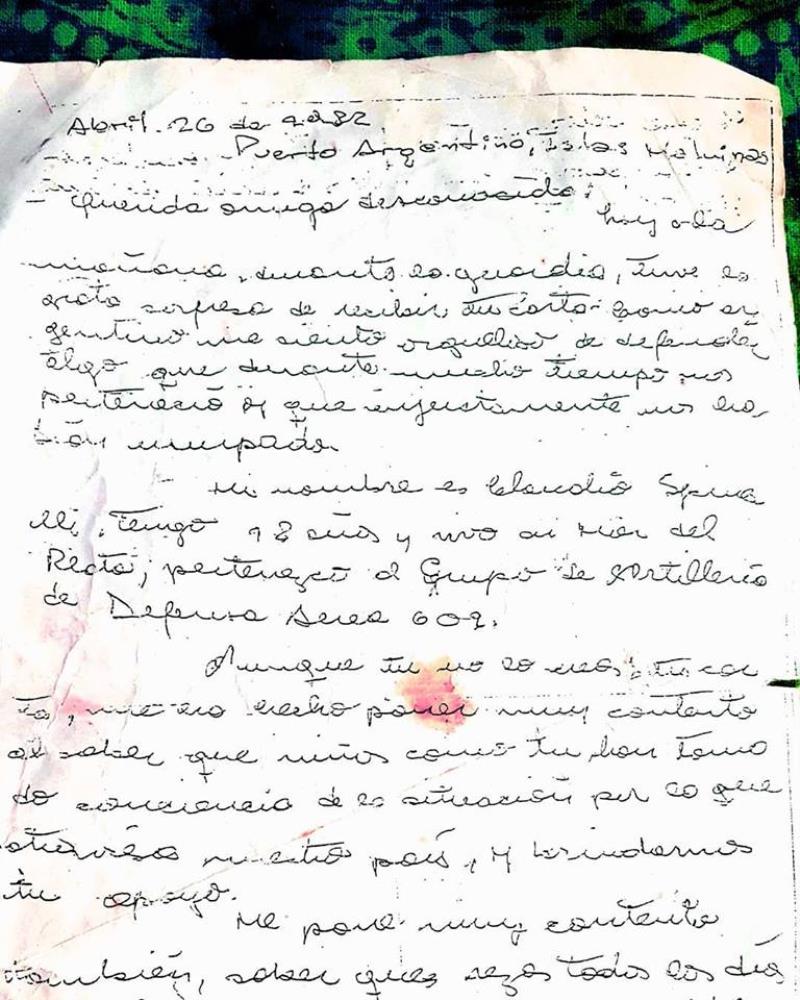 Abril. 26 de 1982
Puerto Argentino, Islas Malvinas
Querida amiga desconocida:
hoy a la
mañana, durante la guardia, tuve la
grata sorpresa de recibir tu carta. Como ar
gentino me siento orgulloso de defender
algo que durante mucho tiempo nos
perteneció y que injustamente nos ha
bían usurpado.
Mi nombre es Claudio Spina
lli, tengo 18 años y vivo en Mar del
Plata, pertenezco al Grupo de Artillería
de Defensa Aerea 602.
Aunque tu no lo creas, tu car
ta, me ha hecho poner muy contento
al saber que niños como tu, han toma
do conciencia de la situación por la que
atraviesa nuestro país, y brindarnos
tu apoyo.
Me pone muy contento
también, saber que rezas todos los días